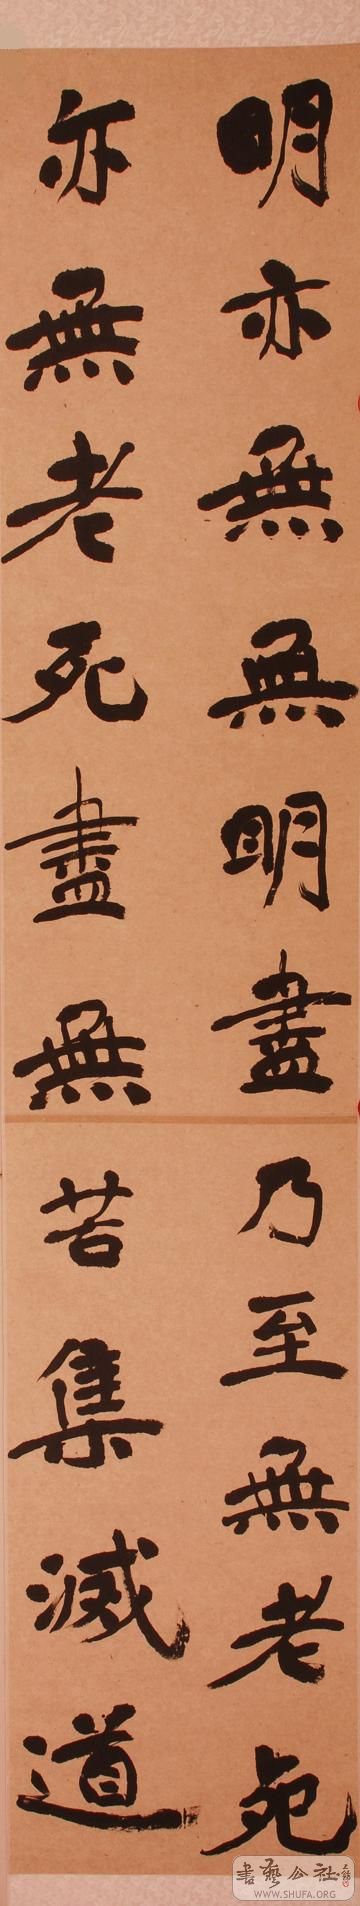 明亦無無明盡乃至無老死
亦無老死盡無苦集滅道
書藝公社
WWW.SHUFA.ORG